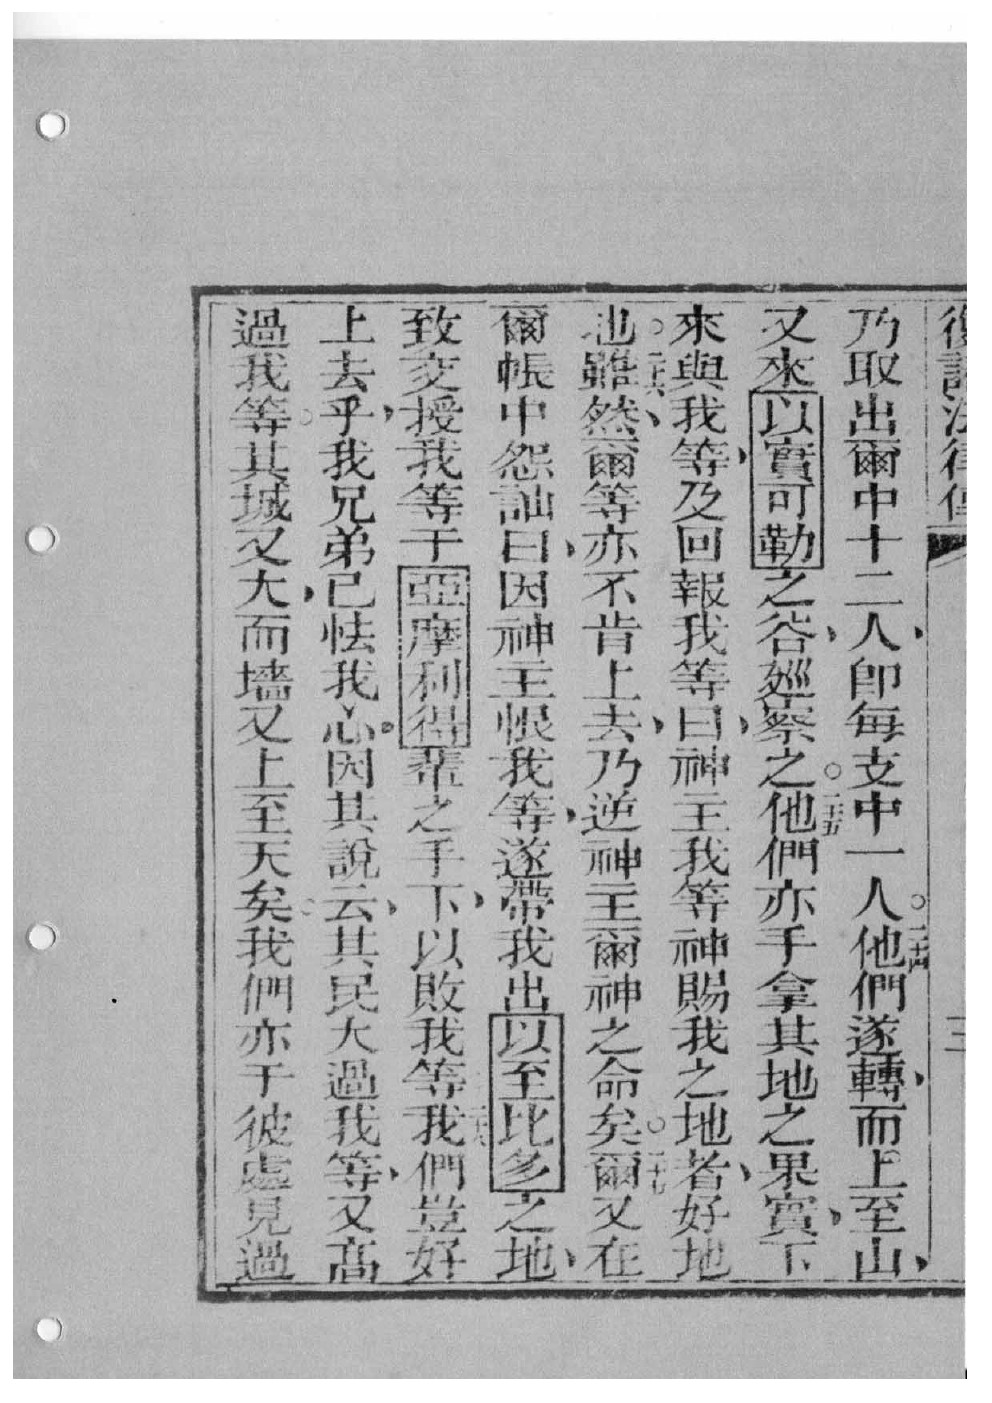 復講法律傳 三
乃取出爾中十二人、卽每支中一人。二十四他們遂轉、而上至山、
又來以實可勒之谷、廵察之。二十五他們亦手拿其地之果實、下
來與我等、及回報我等曰、神主我等神賜我之地者、好地
也。二十六雖然、爾等亦不肯上去、乃逆神主爾神之命矣。二十七爾又在
爾帳中怨訕曰、因神主恨我等、遂帶我出以至比多之地、
致交授我等于亞摩利得輩之手下、以敗我等。二十八我們豈好
上去乎、我兄弟已怯我心。因其說云、其民大過我等、又高
過我等。其城又大、而墻又上至天矣。我們亦于彼處見過